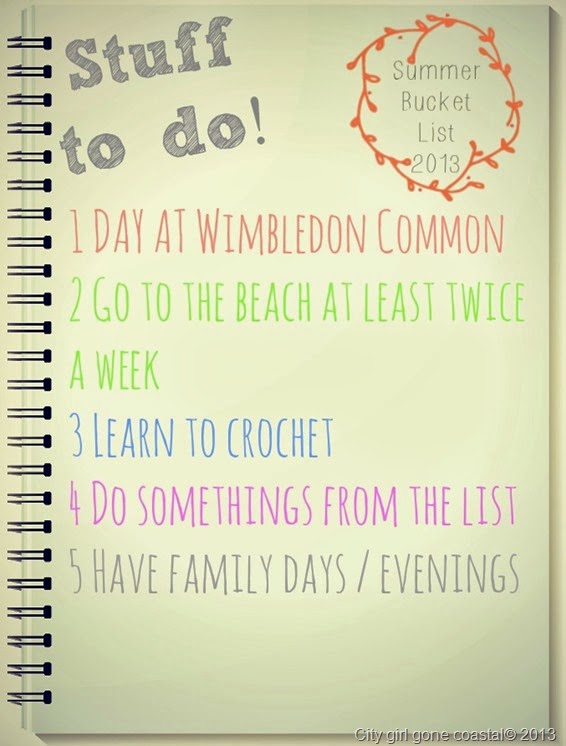 Stuff
to do!
Summer
Bucket
List
2013
1 Day at Wimbledon Common
2 Go to the beach at least twice
a week
3 Learn to crochet
4 Do somethings from the list
5 Have family days / evenings
City girl gone coastal© 2013